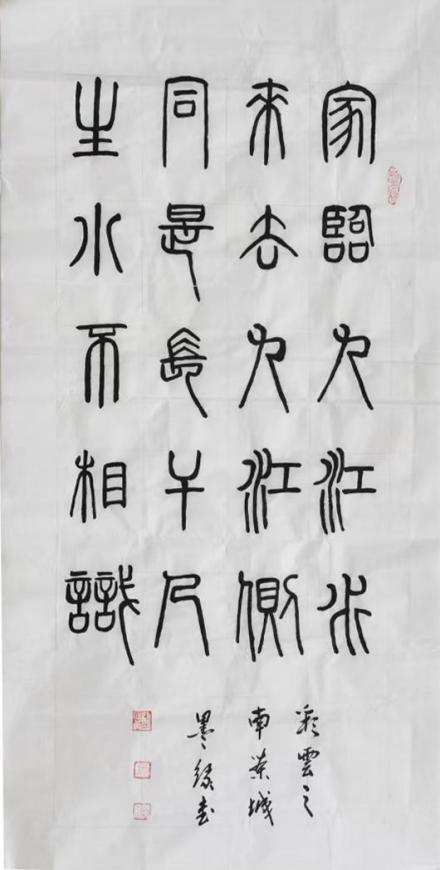 家臨九江水
來去九江側
同是長干人
生小不相識
彩雲之
南城
墨書